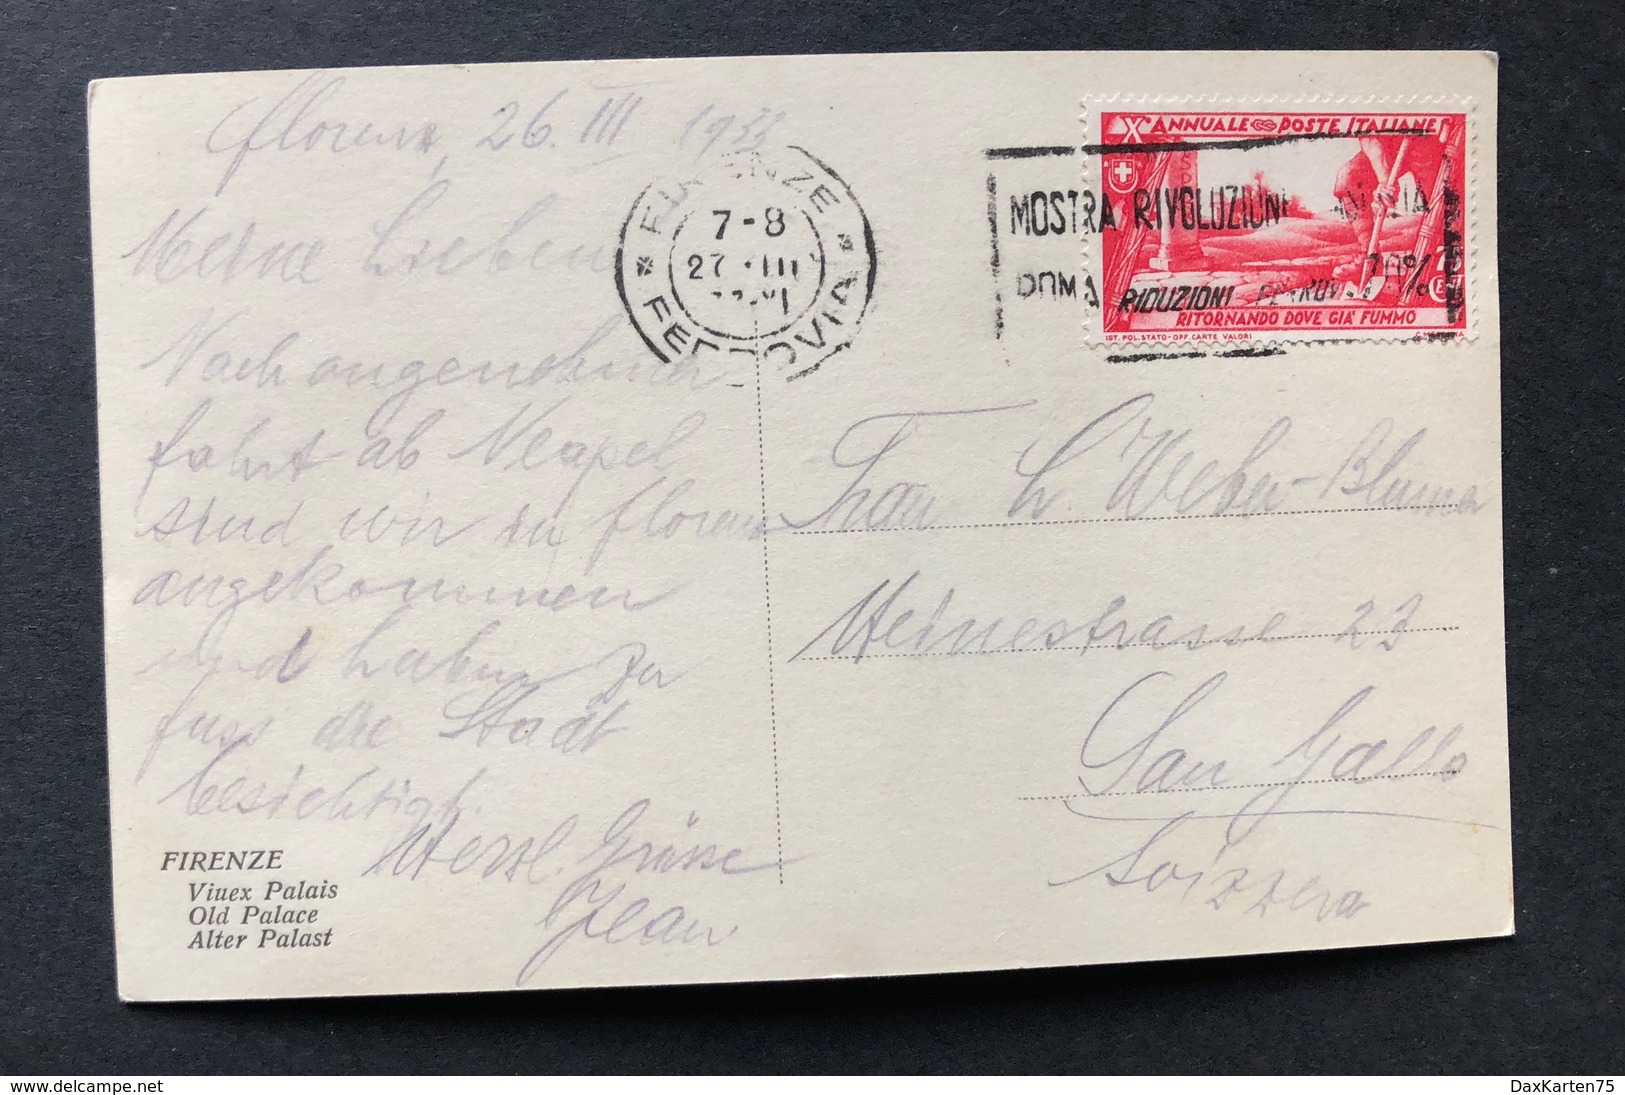 Florenz, 26. III 1933
Meine Lieben
Nach angenehmer
fahrt ab Neapel
sind wir in Florenz
angekommen
und haben zu
fuss die Stadt
besichtigt.
Herzl. Grüsse
Jean.
FIRENZE
Viuex Palais
Old Palace
Alter Palast
FIRENZE
7-8
27 III
FERROVIA
X ANNUALE POSTE ITALIANE
MOSTRA RIVOLUZIONE
ROMA RIDUZIONI FERROV. 70%
RITORNANDO DOVE GIA' FUMMO
IST. POL. STATO-OFF. CARTE VALORI
Frau L. Weber-Blumer
Heinestrasse 23
San Gallo
Svizzera
www.delcampe.net
DaxKarten75